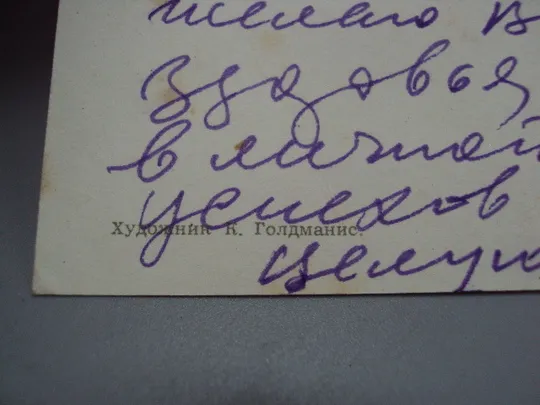 желаю в
здоровья
в личной
успехов
Художник К. Голдманис.
целую